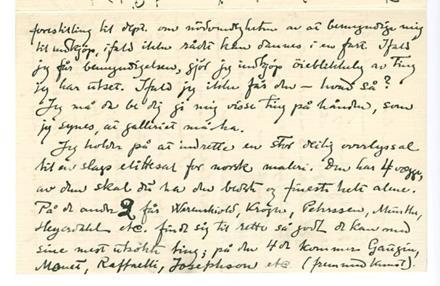 forestilling til dept. om nödvendigheten av at bemyndige mig
til indkjöp, ifald ikke rådet kan dannes i en fart. Ifald
jeg får bemyndigelsen, gjör jeg indkjöp öieblikkelig av ting
jeg har utset. Ifald jeg ikke får den – hvad så?
Jeg må da be dig gi mig visse ting på hånden, som
jeg synes, at galleriet må ha.
Jeg holder på at indrette en stor deilig overlyssal
til en slags elitesal for norsk maleri. Den har 4 vægge
av dem skal du ha den bedste og fineste helt alene.
På de andre 2 får Werenskiold, Krogh, Peterssen, Munthe,
Heyerdahl etc. finde sig til rette så godt de kan med
sine mest utsökte ting; på den 4de kommer Gaugin,
Manet, Raffaelli, Josephson etc (fremmed kunst).